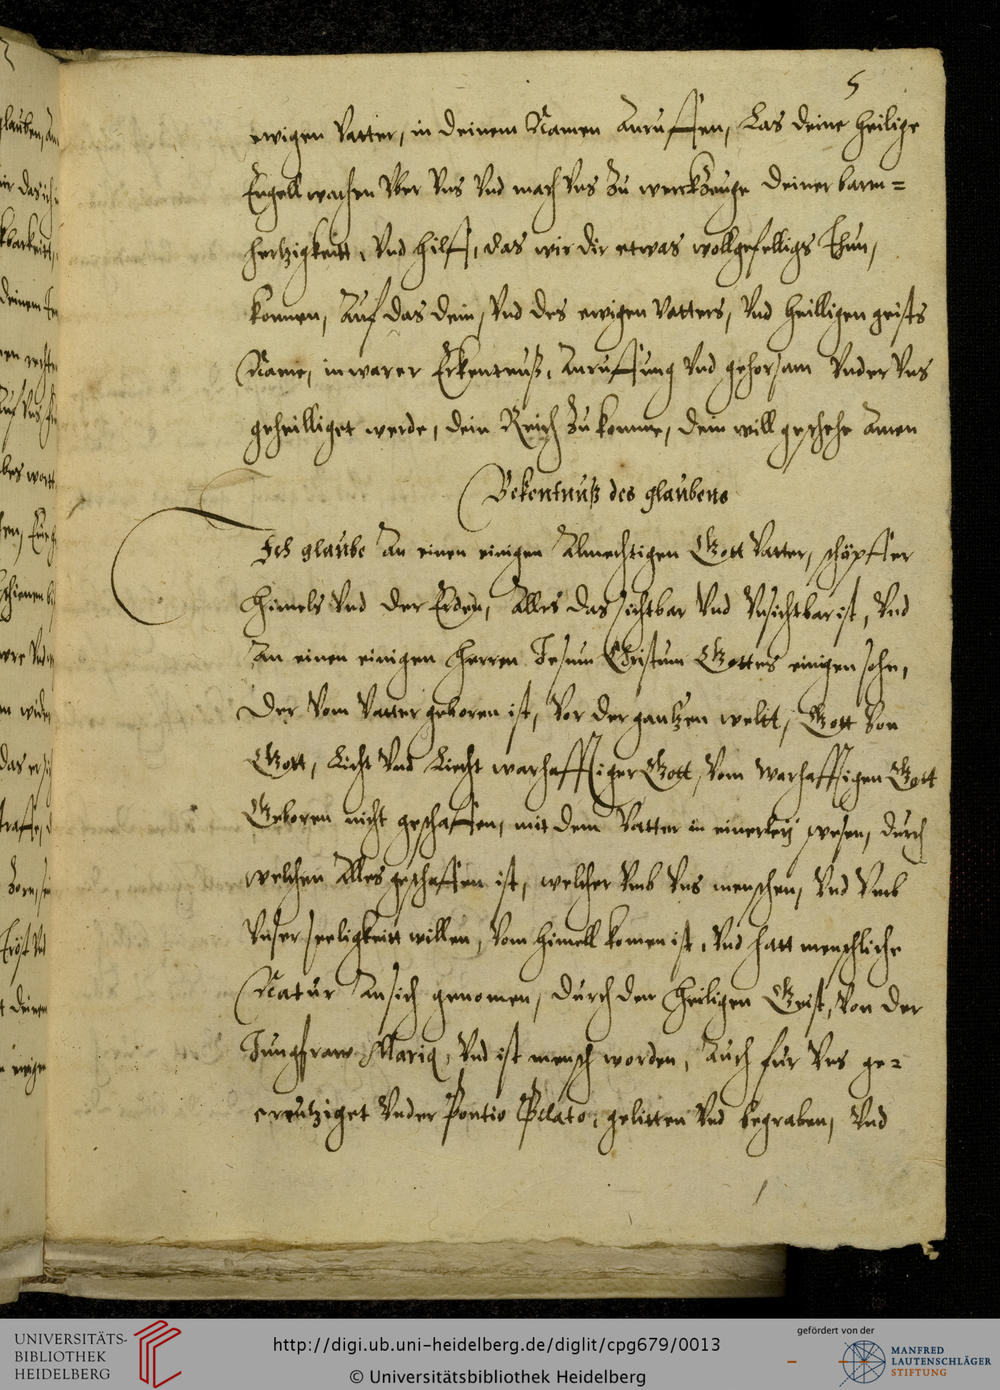 5
ewigen Vatter, in deinem Namen Anruffen, Las deine heilige
Engell wachen Vber Vns Vnd mach Vns Zu werckZeuge deiner barm=
hertzigkeitt, Vnd hilff, das wir dir etwas wollgefelligs Thun,
konnen, Auf das dein, Vnd des ewigen Vatters, Vnd heilligen geists
Name, in warer Erkentnuß, Anruffung Vnd gehorsam Vnder Vns
geheilliget werde, dein Reich Zu komme, dein will geschehe Amen
Bekentnuß des glaubens
Ich glaube An einen einigen Almechtigen Gott Vatter, schöpffer
Himels Vnd der Erden, Alles das sichtbar Vnd Vnsichtbar ist, Vnd
An einen einigen Herren Jesum Christum Gottes einigen sohn,
Der Vom Vatter geboren ist, Vor der gantzen weltt, Gott Von
Gott, Licht Vnd Liecht warhafftiger Gott, Vom warhafftigen Gott
Geboren nicht geschaffen, mit dem Vatter in einerley wesen, durch
welchen Alles geschaffen ist, welcher Vmb Vns menschen, Vnd Vmb
Vnser seeligkeitt willen, Vom himell komen ist, Vnd hatt menschliche
Natur An sich genomen, durch den Heiligen Geist, Von der
Jungfraw Maria, Vnd ist mensch worden, Auch fur Vns ge=
creutziget Vnder Pontio Pilato, gelitten Vnd begraben, Vnd
UNIVERSITÄTS-
BIBLIOTHEK
HEIDELBERG
http://digi.ub.uni-heidelberg.de/diglit/cpg679/0013
© Universitätsbibliothek Heidelberg
gefördert von der
MANFRED
LAUTENSCHLÄGER
STIFTUNG